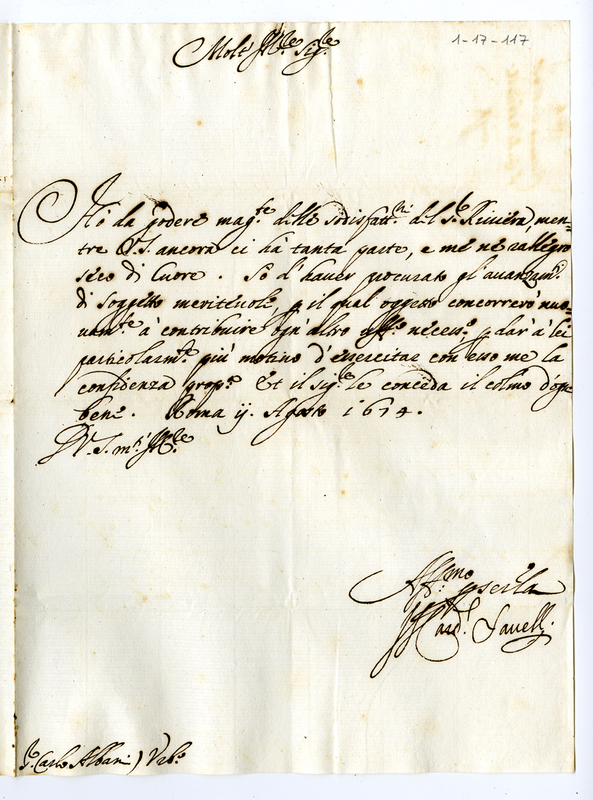 1-17-117
Molt' Ill.re Sig.re
Hò da godere mag.te delle sodisfatt.ni del S.r Riviera, men-
tre V.S. ancora ci hà tanta parte, e me ne rallegro
seco di Cuore. Sò d'haver procurato gl'avanzam.ti
di soggetto meritevole, p il qual oggetto concorrerò nuo-
vam.te à contribuire ogn'altro uff.o necess.o p dar' à lei
particolarm.te più motivo d'esercitar con esso me la
confidenza prop.a Et il Sig.re le conceda il colmo d'ogni
bene. Roma ij. Agosto 1674.
D.V.S. m.to Ill.re
Aff.mo p ser.la
Il Card.l Savelli
S.r Carlo Albani) Urb.o